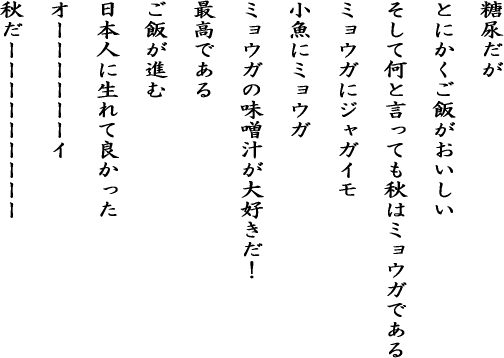 糖尿だが
とにかくご飯がおいしい
そして何と言っても秋はミョウガである
ミョウガにジャガイモ
小魚にミョウガ
ミョウガの味噌汁が大好きだ！
最高である
ご飯が進む
日本人に生れて良かった
オーーーーーーイ
秋だーーーーーーーーー